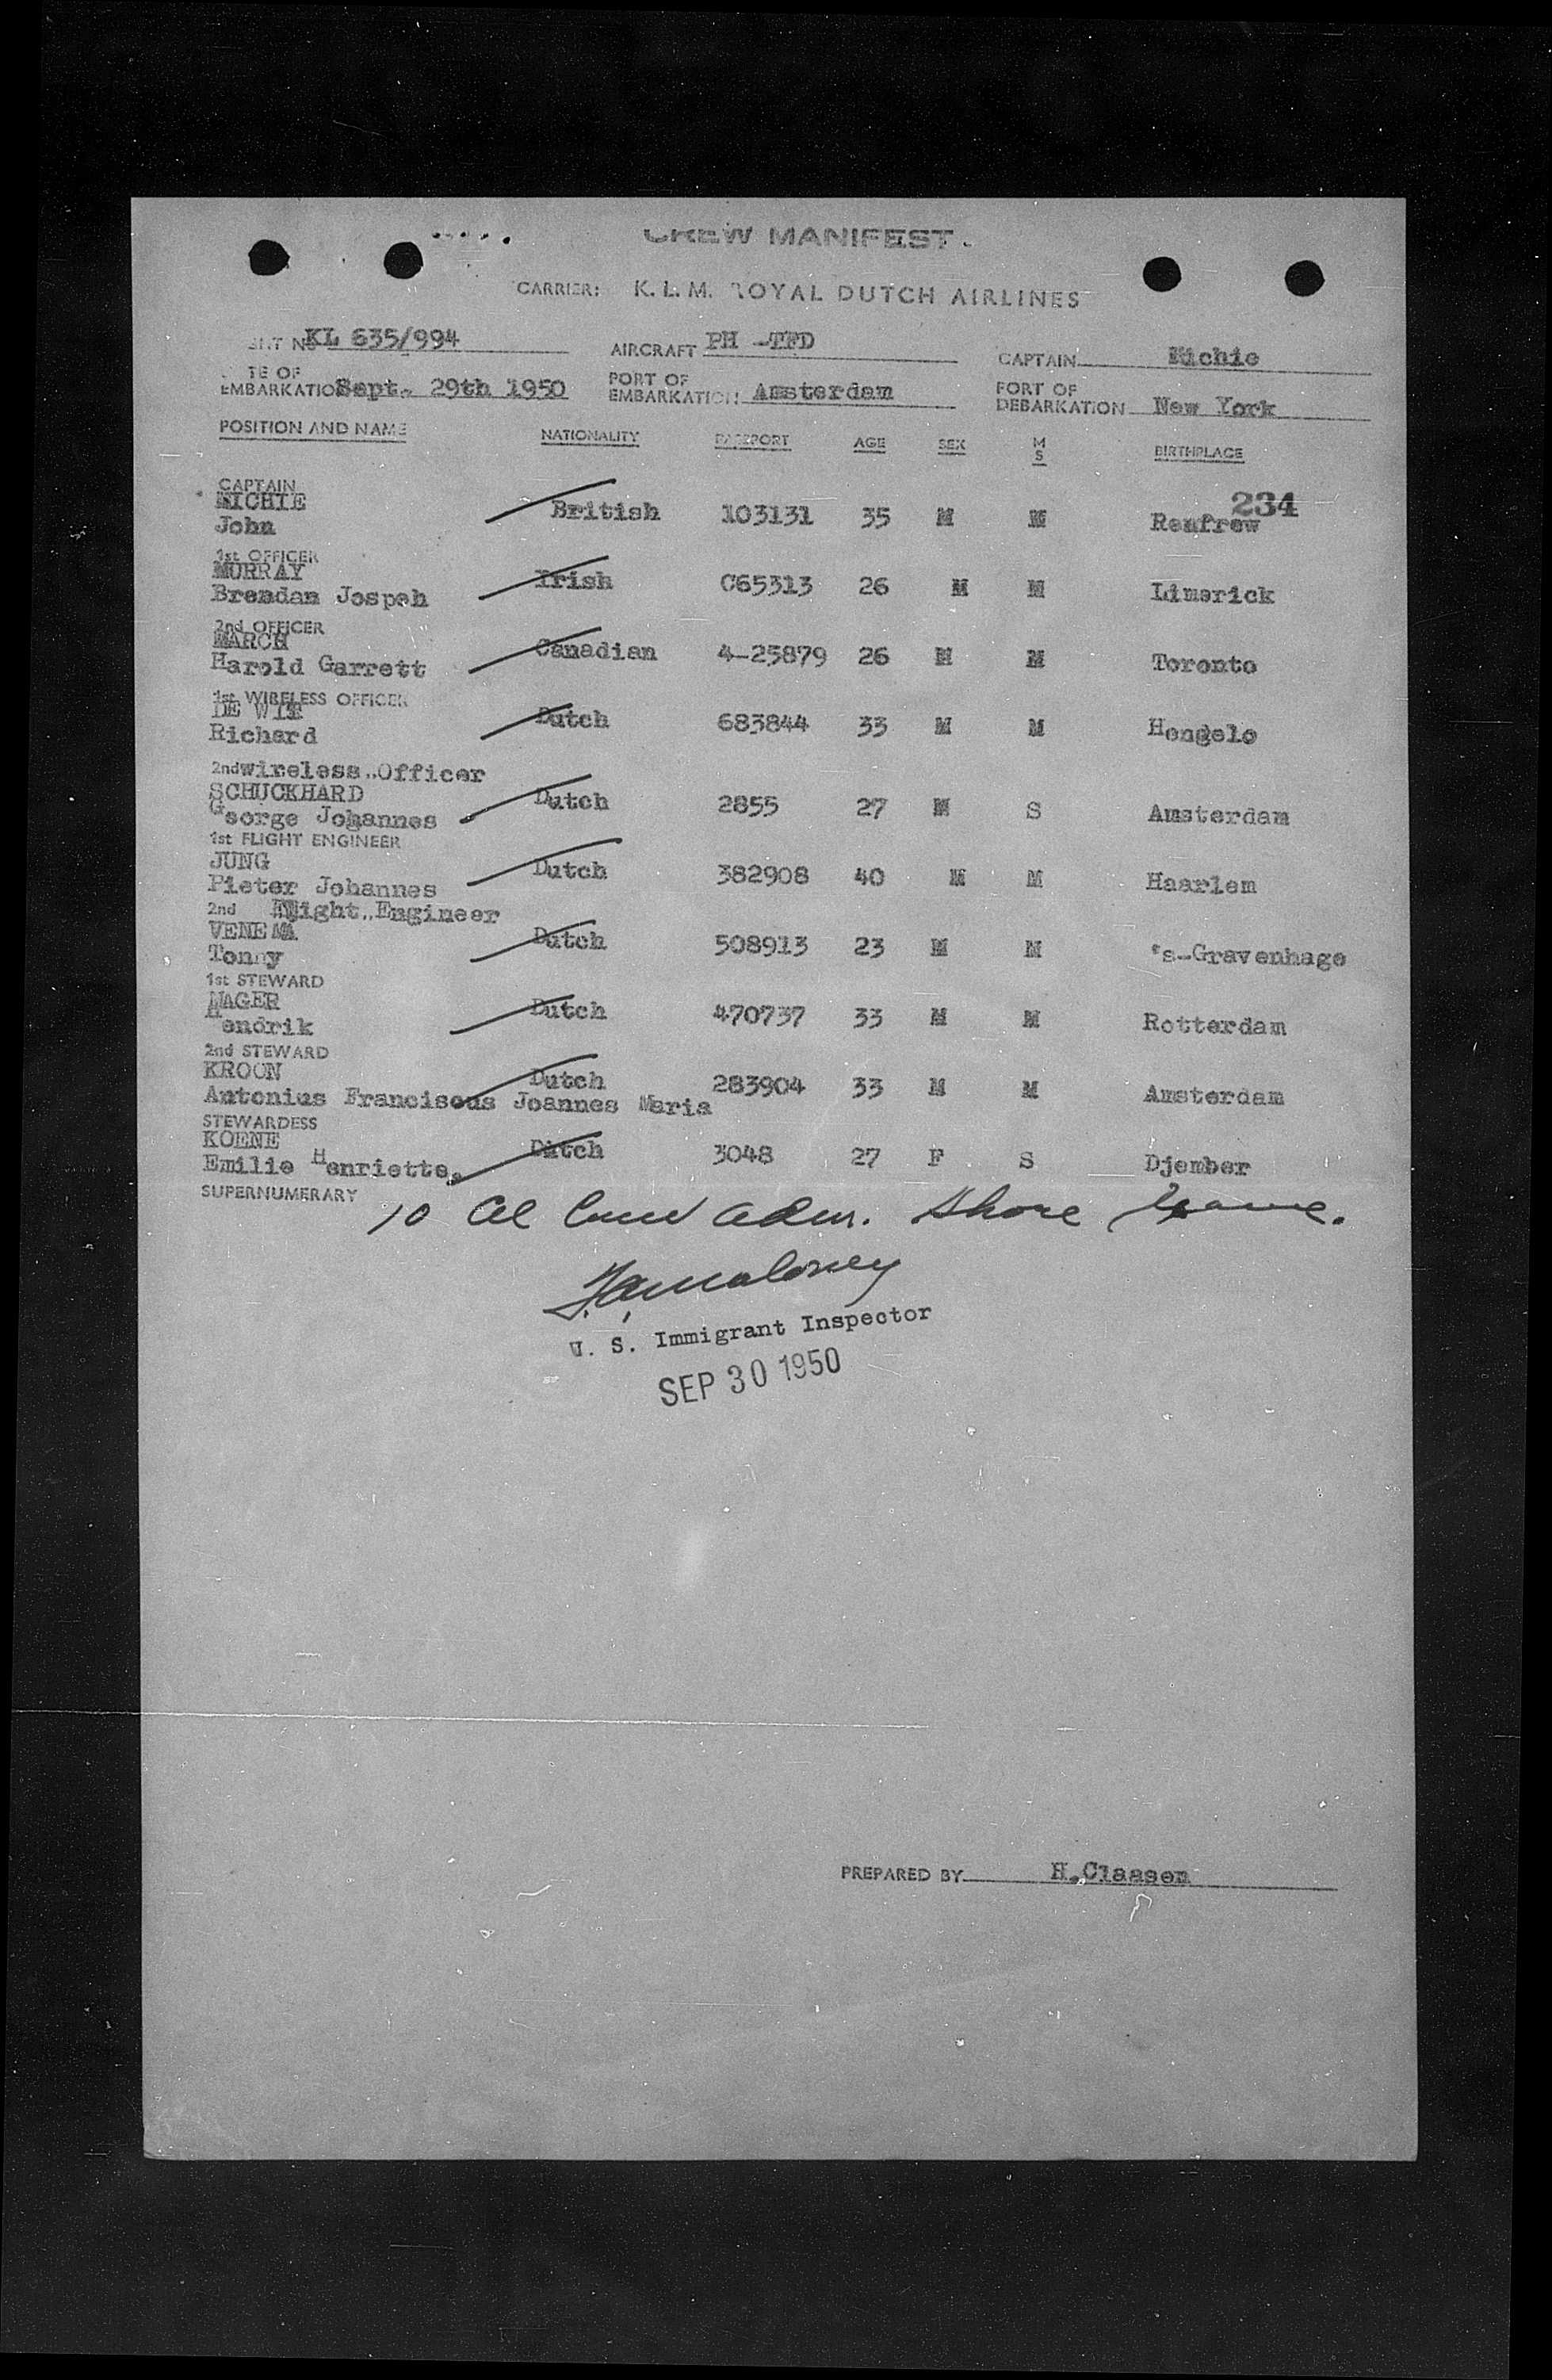 CREW MANIFEST.
CARRIER: K. L. M. ROYAL DUTCH AIRLINES
KL 635/994 AIRCRAFT PH -TFD CAPTAIN Michie
TE OF EMBARKATION Sept. 29th 1950 PORT OF EMBARKATION Amsterdam PORT OF DEBARKATION New York
POSITION AND NAME NATIONALITY PASSPORT AGE SEX M S BIRTHPLACE
234
CAPTAIN
MICHIE
John British 103131 35 M M Renfrew
1st OFFICER
MURRAY
Brendan Jospeh Irish C65313 26 M M Limerick
2nd OFFICER
MARCH
Harold Garrett Canadian 4-25879 26 M M Toronto
1st WIRELESS OFFICER
DE WIT
Richard Dutch 683844 33 M M Hengelo
2nd wireless..Officer
SCHUCKHARD
George Johannes Dutch 2855 27 M S Amsterdam
1st FLIGHT ENGINEER
JUNG
Pieter Johannes Dutch 382908 40 M M Haarlem
2nd Flight..Engineer
VENEMA
Tonny Dutch 508913 23 M M 's-Gravenhage
1st STEWARD
Hendrik Dutch 470737 33 M M Rotterdam
2nd STEWARD
KROON Dutch 283904 33 M M Amsterdam
Antonius Franciscus Joannes Maria
STEWARDESS
KOENE
Emilie Henriette. Dutch 3048 27 F S Djember
SUPERNUMERARY
10 adm. shore leave.
F.A. Maloney
U. S. Immigrant Inspector
SEP 30 1950
PREPARED BY H.Claasen